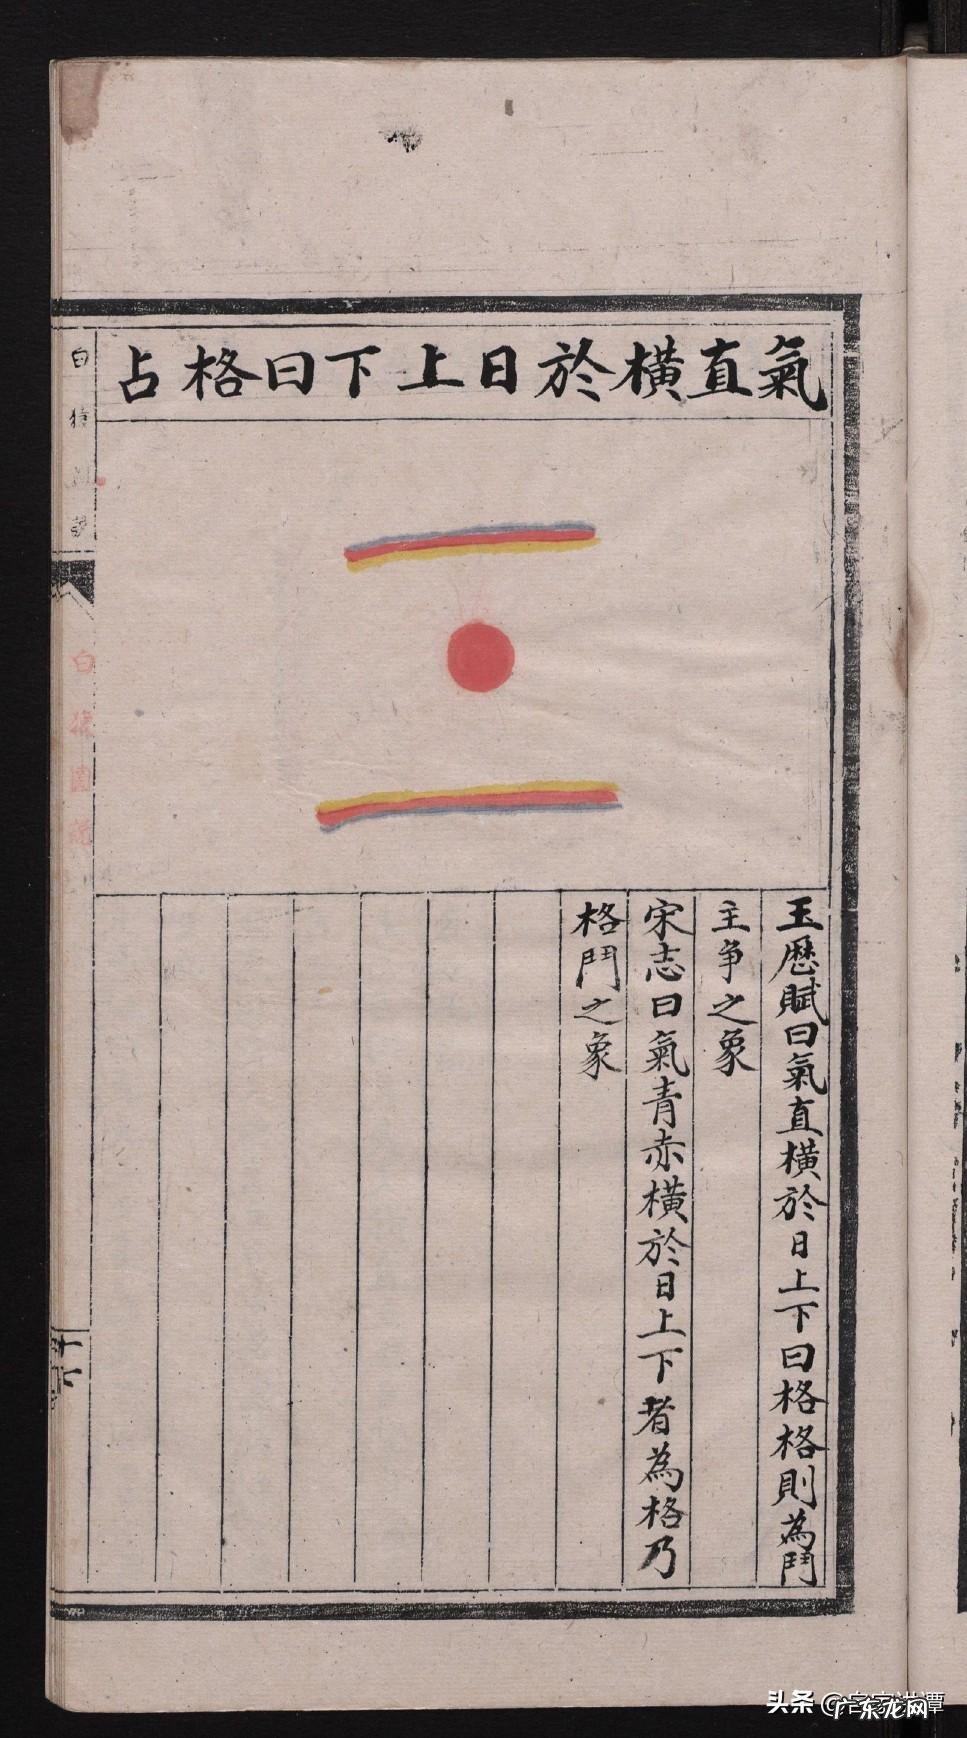 氣直橫於日上下曰格占
玉歷賦曰氣直橫於日上下曰格格則為鬥
主争之象
宋志曰氣青赤橫於日上下者為格乃
格鬥之象
白猿
說
白猿圖說
十七
头条
广东龙网